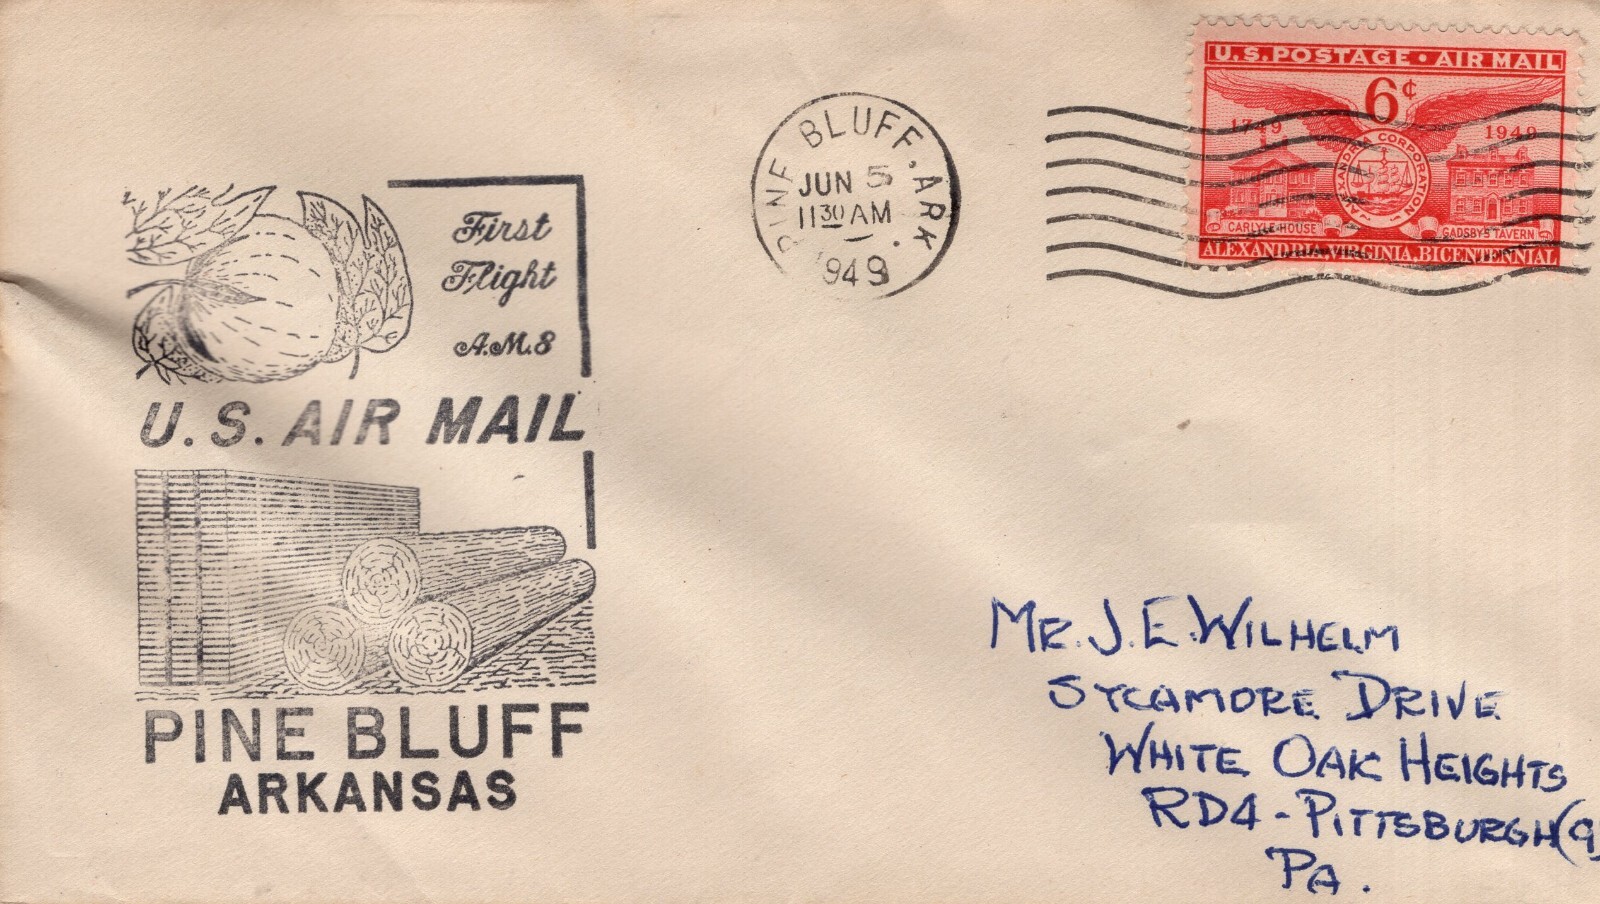 First
Flight
A.M.8
U.S. AIR MAIL
PINE BLUFF
ARKANSAS
PINE BLUFF, ARK.
JUN 5
11 30 AM
1949
U.S. POSTAGE • AIR MAIL
6¢
1749
1949
ALEXANDRIA CORPORATION
CARLYLE HOUSE
GADSBY'S TAVERN
ALEXANDRIA, VIRGINIA, BICENTENNIAL
MR. J. E. WILHELM
SYCAMORE DRIVE
WHITE OAK HEIGHTS
RD4 - PITTSBURGH (9)
PA.